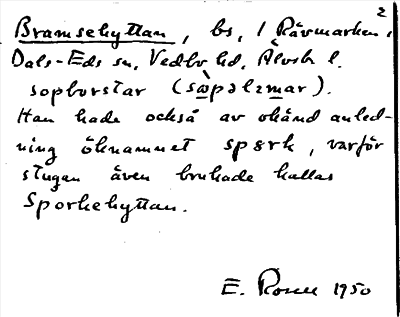 2
Bramsehyttan, bs, / Rävmarken,
Dals-Eds sn, Vedbo hd, Älvsb l.
sopborstar (sɷ̀pəlzmar).
Han hade också av okänd anled-
ning öknamnet spørk, varför
stugan även brukade kallas
Sporkehyttan.
E. Rosell 1950